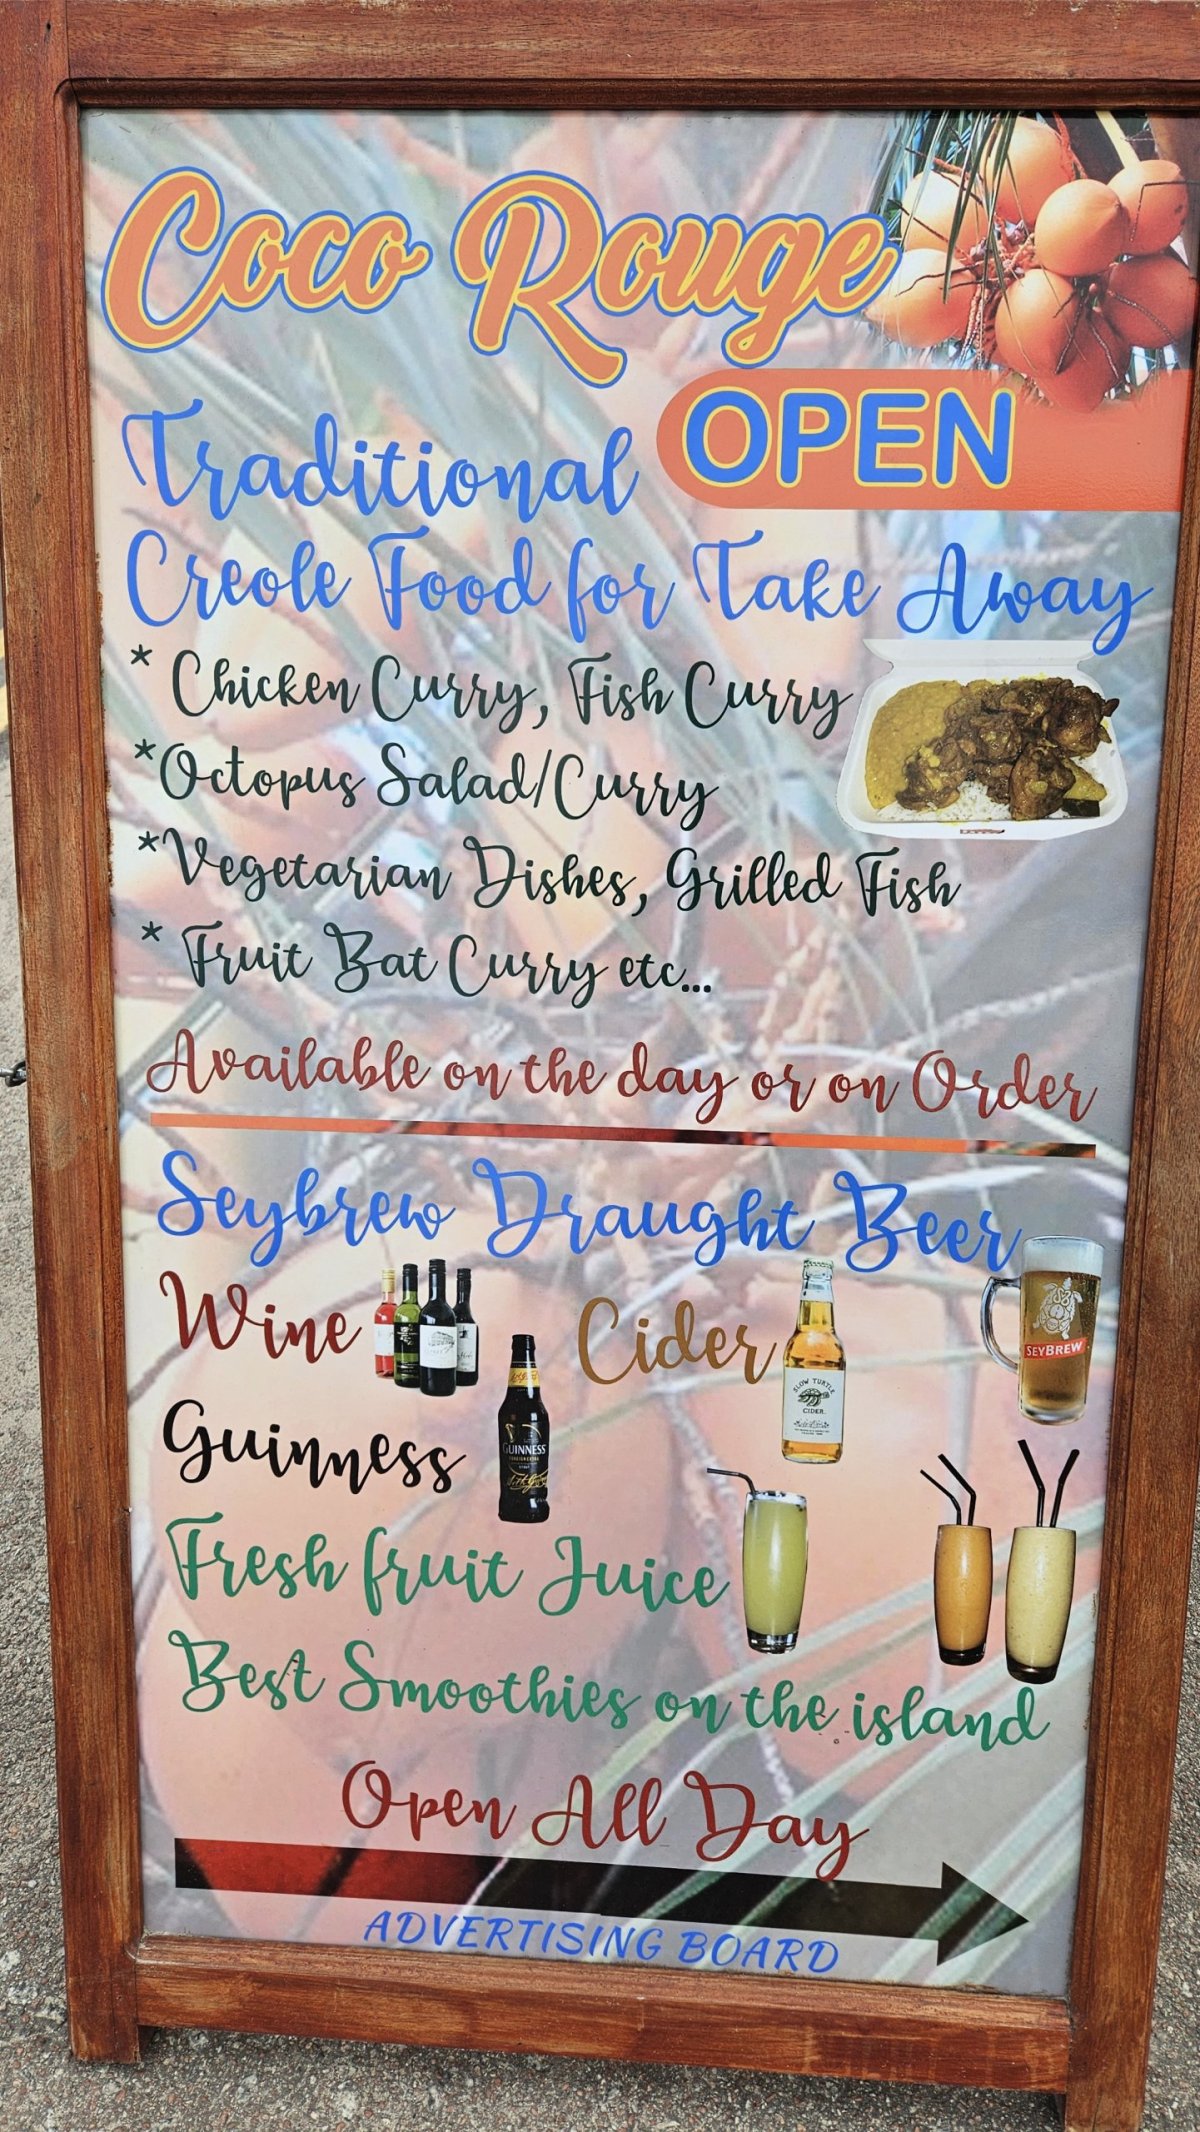 Coco Rouge
OPEN
Traditional
Creole Food for Take Away
* Chicken Curry, Fish Curry
*Octopus Salad/Curry
*Vegetarian Dishes, Grilled Fish
* Fruit Bat Curry etc...
Available on the day or on Order
Seybrew Draught Beer
SEYBREW
Wine
Cider
SLOW TURTLE
CIDER
Guinness
GUINNESS
Fresh fruit Juice
Best Smoothies on the island
Open All Day
ADVERTISING BOARD